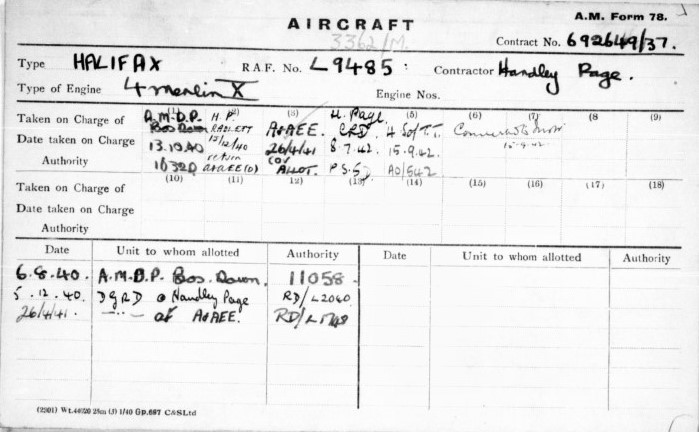 A.M. Form 78.
AIRCRAFT
3362/M.
Contract No. 692649/37.
Type HALIFAX R.A.F. No. L9485 : Contractor Handley Page.
Type of Engine 4 Merlin X Engine Nos.
(1) (2) (3) (4) (5) (6) (7) (8) (9)
Taken on Charge of A.M.D.P. Bos Down H.P. RADLETT A&AEE. H. Page CRD. 4 S of T.T.
Date taken on Charge 13.10.40 13/12/40 26/4/41 8.7.42. 15.9.42. 15-9-42.
Authority return A&AEE (0) ALLOT. AO/542
(10) (11) (12) (13) (14) (15) (16) (17) (18)
Taken on Charge of
Date taken on Charge
Authority
Date Unit to whom allotted Authority Date Unit to whom allotted Authority
6.8.40. A.M.D.P. Bos. Down. 11058
5.12.40. DGRD @ Handley Page RD/L2040
26/4/41. —"— at A&AEE. RD/L1748
(2301) Wt. 28m (3) 1/40 Gp.697 C&SLtd